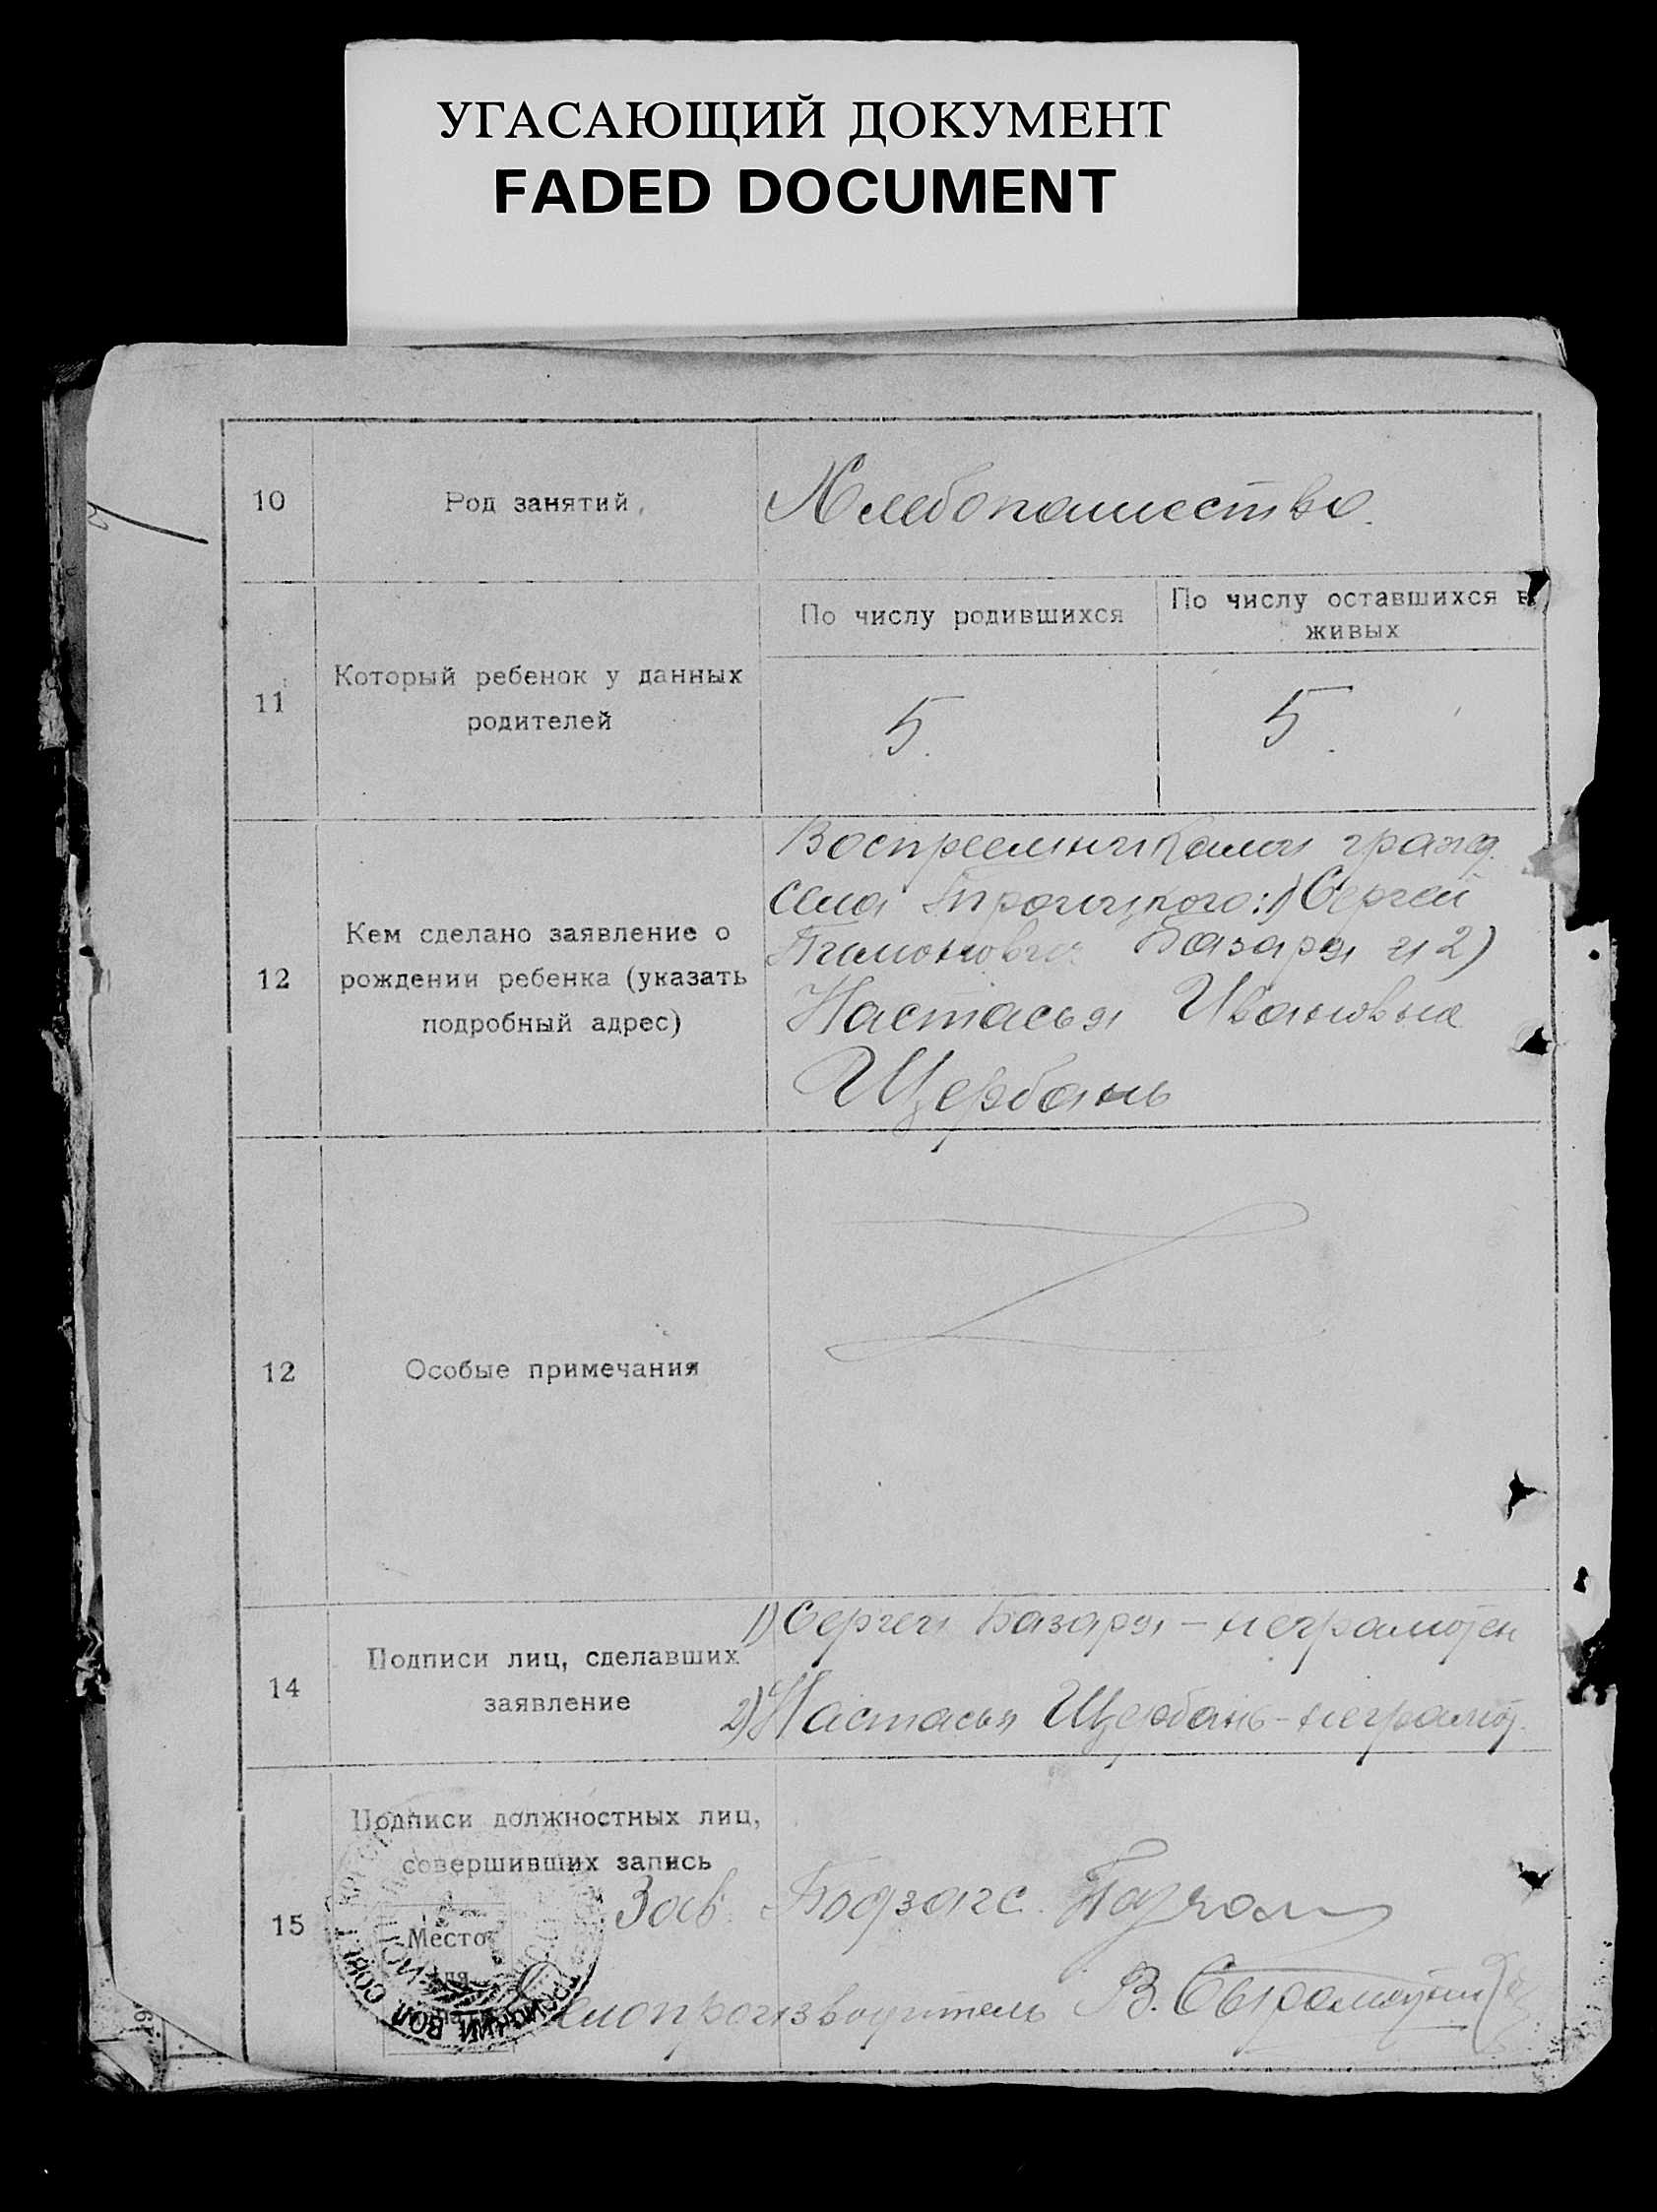 УГАСАЮЩИЙ ДОКУМЕНТ
FADED DOCUMENT
10
Род занятий
Хлебопашество.
11
Который ребенок у данных
родителей
По числу родившихся
По числу оставшихся в
живых
5.
5.
12
Кем сделано заявление о
рождении ребенка (указать
подробный адрес)
Восприемниками гражд.
села Троицкого: 1) Сергей
Базаря и 2)
Настасья Ивановна
Щербань
12
Особые примечания
14
Подписи лиц, сделавших
заявление
1) Сергей Базаря – неграмотен
2) Настасья Щербань – неграмот.
15
Подписи должностных лиц,
совершивших запись
Место
для
Зав. Подзагс.
Делопроизводитель В.